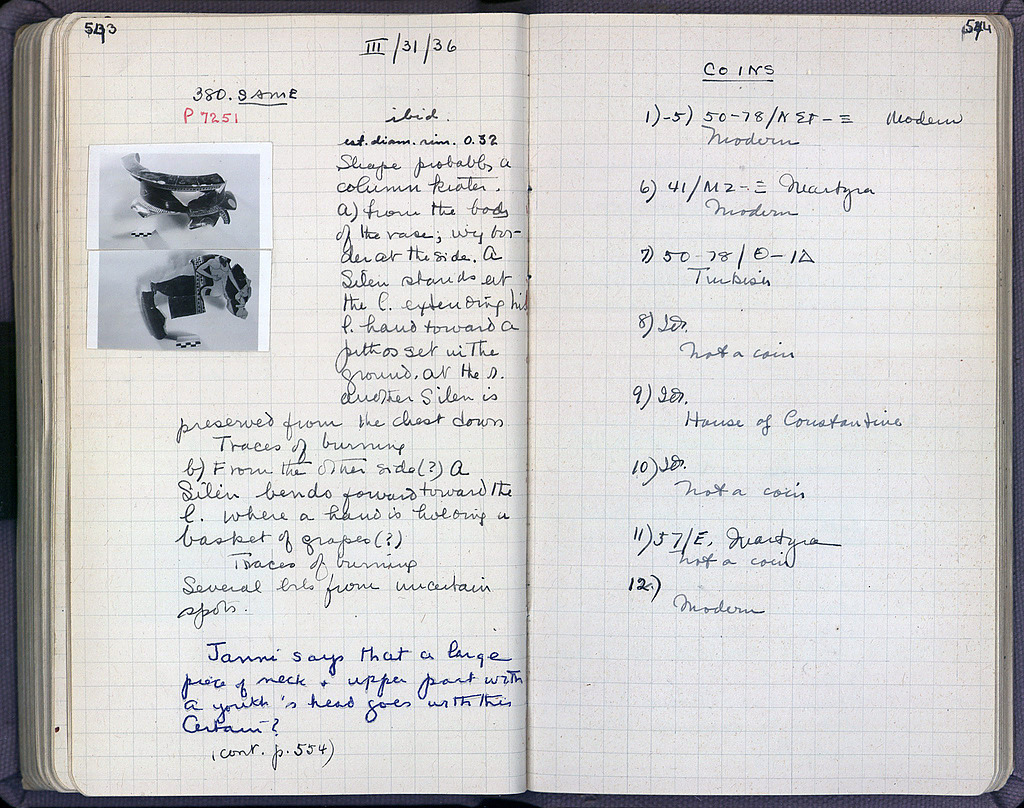 543
III/31/36
380. SAME
P 7251
ibid.
est. diam. rim. 0.32
Shape probably a
column krater.
a) from the body
of the vase; ivy bor-
der at the side. A
Silen stands at
the l. extending his
l. hand toward a
pithos set in the
ground. at the r.
another Silen is
preserved from the chest down
Traces of burning
b) From the other side(?) A
Silen bends forward toward the
l. where a hand is holding a
basket of grapes(?)
Traces of burning
Several bits from uncertain
spots.
Janni says that a large
piece of neck & upper part with
a youth's head goes with this
Certain?
(cont. p. 554)
544
COINS
1)-5) 50-78/ΝΣΤ-Ξ Modern
Modern
6) 41/ΜΖ-Ξ Martyra
Modern
7) 50-78/Θ-ΙΔ
Turkish
8) Id.
not a coin
9) Id.
House of Constantine
10) Id.
not a coin
11) 37/Ε, Martyra
not a coin
12)
Modern